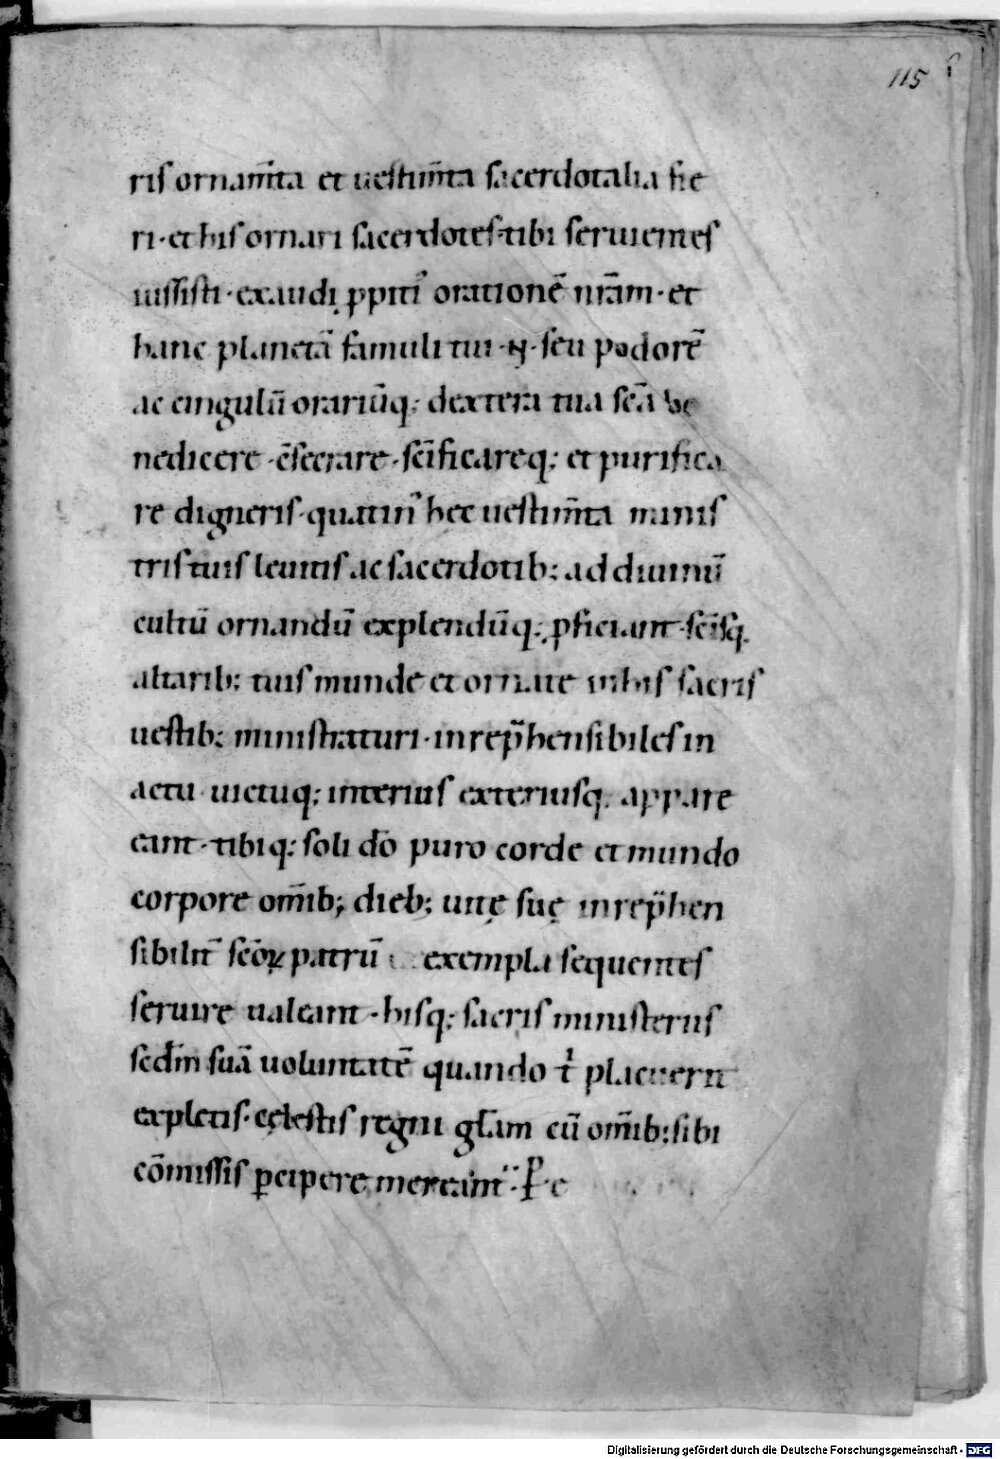 115
ris ornam̅ta et uestim̅ta sacerdotalia fie
ri · et his ornari sacerdotes tibi seruientes
iussisti · exaudi ꝓpiti᾿ orationē nr̅am · et
hanc planetā famuli tui · N · seu podorē
ac cingulū orariūq; dextera tua sc̅a be
nedicere · c̅secrare · sc̅ificareq; et purifica
re digneris · quatin᾿ hec uestim̅ta minis
tris tuis leuitis ac sacerdotib; ad diuinū
cultū ornandū explendūq; ꝓficiant · sc̅isq;
altarib; tuis munde et ornate in his sacris
uestib; ministraturi · inrep̅hensibiles in
actu uictuq; interius exteriusq; appare
ant · tibiq; soli do̅ puro corde et mundo
corpore om̅ib; dieb; uitę suę inrep̅hen
sibilit̅ sc̅oꝝ patrū exempla sequentes
seruire ualeant · hisq; sacris ministeriis
sedm̅ suā uoluntatē quando t᾿ placuerit
expletis · cęlestis regni gl̅am cū om̅ib; sibi
cōmissis ꝑcipere mereant᾿ · P
Digitalisierung gefördert durch die Deutsche Forschungsgemeinschaft - DFG